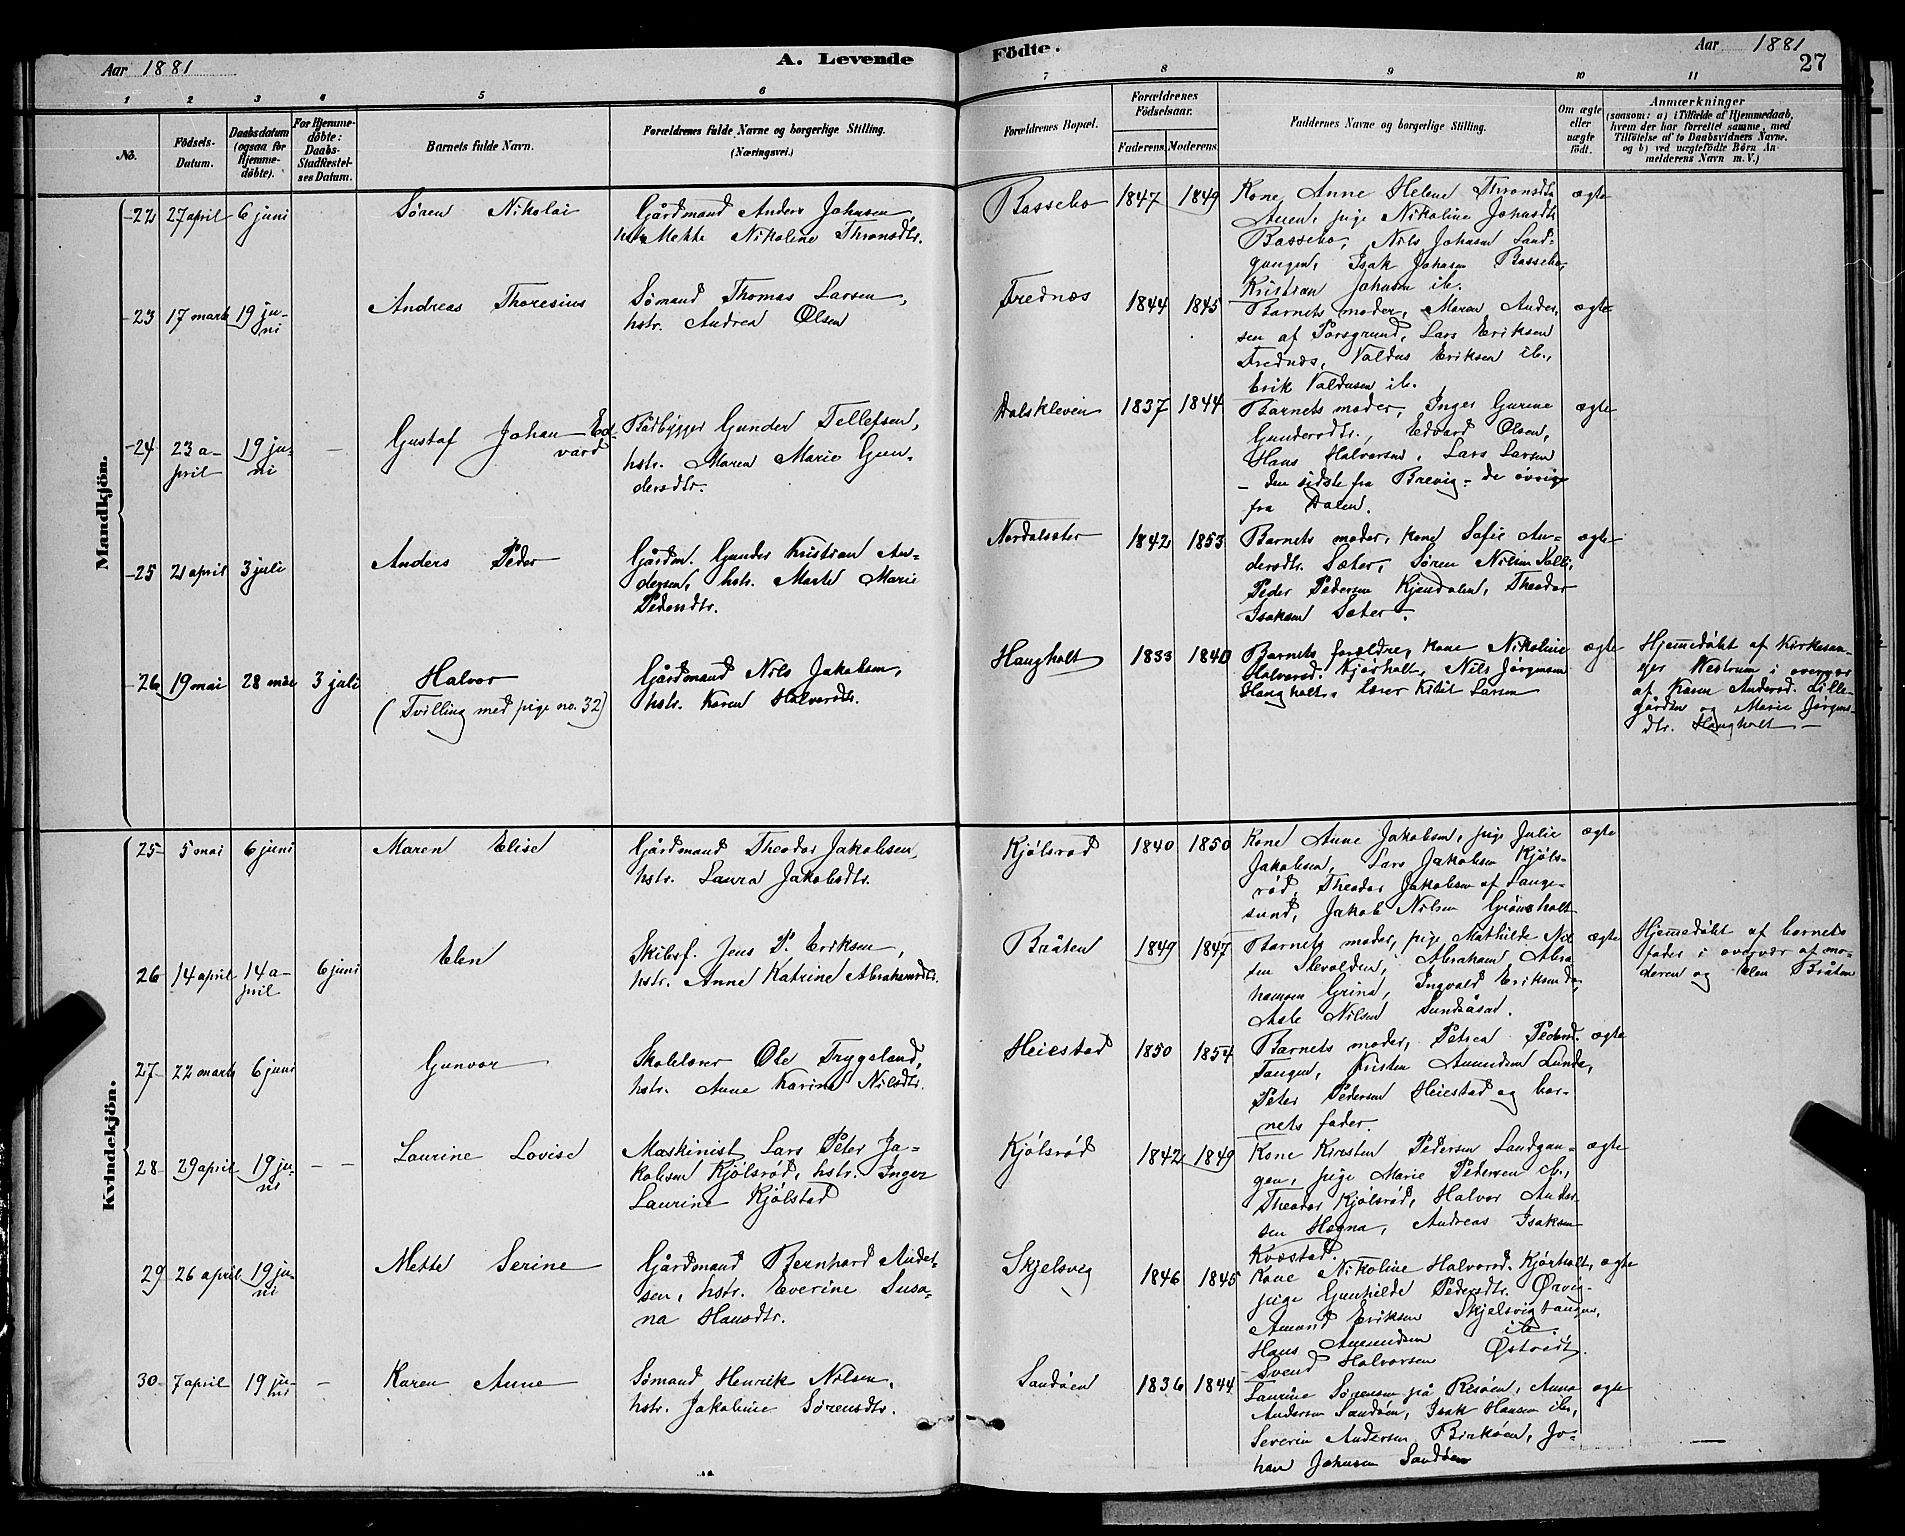 Aar 1881
A. Levende
Fødte.
Aar 1881
27
1 2 3 4 5 6
7 8 9 10 11
No.
Födsels-
Datum.
Daabsdatum
(ogsaa for
Hjemme-
døbte).
For Hjemme-
døbte:
Daabs-
Stadfæstel-
ses Datum.
Barnets fulde Navn.
Forældrenes fulde Navne og borgerlige Stilling.
(Næringsvei.)
Forældrenes Bopæl.
Forældrenes
Fødselsaar.
Faderens. Moderens.
Faddernes Navne og borgerlige Stilling.
Om ægte
eller
uægte
født.
Anmærkninger
(saasom: a) i Tilfælde af Hjemmedaab,
hvem der har forrettet samme, med
Tilføielse af to Daabsvidners Navne,
og b) ved uægtefødte Børn An-
melderens Navn m.V.)
Mandkjön.
22 27 april 6 juni
Søren Nikolai
Gårdmand Anders Johnsen,
hstr. Mette Nikoline Thronsdtr.
Bassebo 1847 1849
Kone Anne Helene Thronsdtr
Auen, pige Nikoline Johnsdtr
Bassebo, Nils Johnsen Sand-
gangen, Isak Johnsen Bassebo,
Kristian Johnsen ib.
ægte
23 17 marts 19 ju-
ni
Andreas Thoresius
Sømand Thomas Larsen,
hstr. Andrea Olsen
Frednæs 1844 1845
Barnets moder, Maren Ander-
sen af Porsgrund, Lars Eriksen
Frednæs, Valdus Eriksen ib.,
Erik Valdusen ib.
ægte
24 23 a-
pril 19 ju-
ni –
Gustaf Johan Ed-
vard
Bådbygger Gunder Tellefsen,
hstr. Maren Marie Gun-
dersdtr.
Dalskleven 1837 1844
Barnets moder, Inger Gurine
Gundersdtr., Edvard Olsen,
Hans Halvorsen, Lars Larsen
– den sidste fra Brevig – de øvrige
fra Dalen.
ægte
25 21 april 3 juli
Anders Peder
Gårdm. Gunder Kristian An-
dersen, hstr. Marte Marie
Pedersdtr.
Nordalsæter 1842 1853
Barnets moder, kone Sofie An-
dersdtr. Sæter, Søren Nilsen Salli,
Peder Pedersen Kjendalen, Theodor
Isaksen Sæter.
ægte
26 19 mai 28 mai 3 juli
Halvor
(Tvilling med pige no. 32)
Gårdmand Nils Jakobsen,
hstr. Karen Halvorsdtr.
Haugholt 1833 1840
Barnets forældre, kone Nikoline
Halvorsd. Kjørholt, Nils Jørgensen
Haugholt, Lærer Kittil Larsen
ægte
Hjemmedøbt af Kirkesan-
ger Westrum i overvær
af Karen Andersd. Lille-
gården og Marie Jørgens-
dtr. Haugholt –
Kvindekjön.
25 5 mai 6 juni
Maren Elise
Gårdmand Theodor Jakobsen,
hstr. Laura Jakobsdtr.
Kjølsrød 1840 1850
Kone Anne Jakobsen, pige Julie
Jakobsen, Lars Jakobsen Kjøls-
rød, Theodor Jakobsen af Lange-
sund, Jakob Nilsen Grønsholt
ægte
26 14 april 14 a-
pril 6 juni
Elen
Skibsf. Jens P. Eriksen,
hstr. Anne Katrine Abrahamsdtr.
Bråten 1849 1847
Barnets moder, pige Mathilde Nil-
sen Slevolden, Abraham Abra-
hamsen Grina, Ingvald Eriksen do,
Aste Nilsen Sundsåsen.
ægte
Hjemmedøbt af barnets
fader i overvær af mo-
deren og Elen Bråten
27 22 marts 6 juni
Gunvor
Skolelærer Ole Trygsland,
hstr. Anne Karine Nilsdtr.
Heiestad 1850 1854
Barnets moder, Petrea Pedersd.
Tangen, Kristen Amundsen Lunde,
Peter Pedersen Heiestad og bar-
nets fader.
ægte
28 29 april 19 ju-
ni – –
Laurine Lovise
Maskinist Lars Peter Ja-
kobsen Kjølsrød, hstr. Inger
Laurine Kjølstad
Kjølsrød 1842 1849
Kone Kirsten Pedersen Sandgan-
gen, pige Marie Pedersen ib.,
Theodor Kjølsrød, Halvor Ander-
sen Høgna, Andreas Isaksen
Kvestad.
ægte
29 26 april 19 ju-
ni
Mette Serine
Gårdmand Bernhard Ander-
sen, hstr. Everine Susa-
na Hansdtr.
Skjelsvig 1846 1845
Kone Nikoline Halvorsd. Kjørholt,
pige Gunhilde Pedersdtr. Ørvig
Amund Eriksen Skjelsvigtangen,
Hans Amundsen ib.
Svend Halvorsen Østvedt.
ægte
30 7 april 19 ju-
ni –
Karen Anne
Sømand Henrik Nilsen,
hstr. Jakobine Sørensdtr.
Sandøen 1836 1844
Laurine Sørensen på Risøen, Anna
Andersen Sandøen, Isak Hansen ib.,
Severin Andersen Birkøen, Jo-
han Johnsen Sandøen
ægte